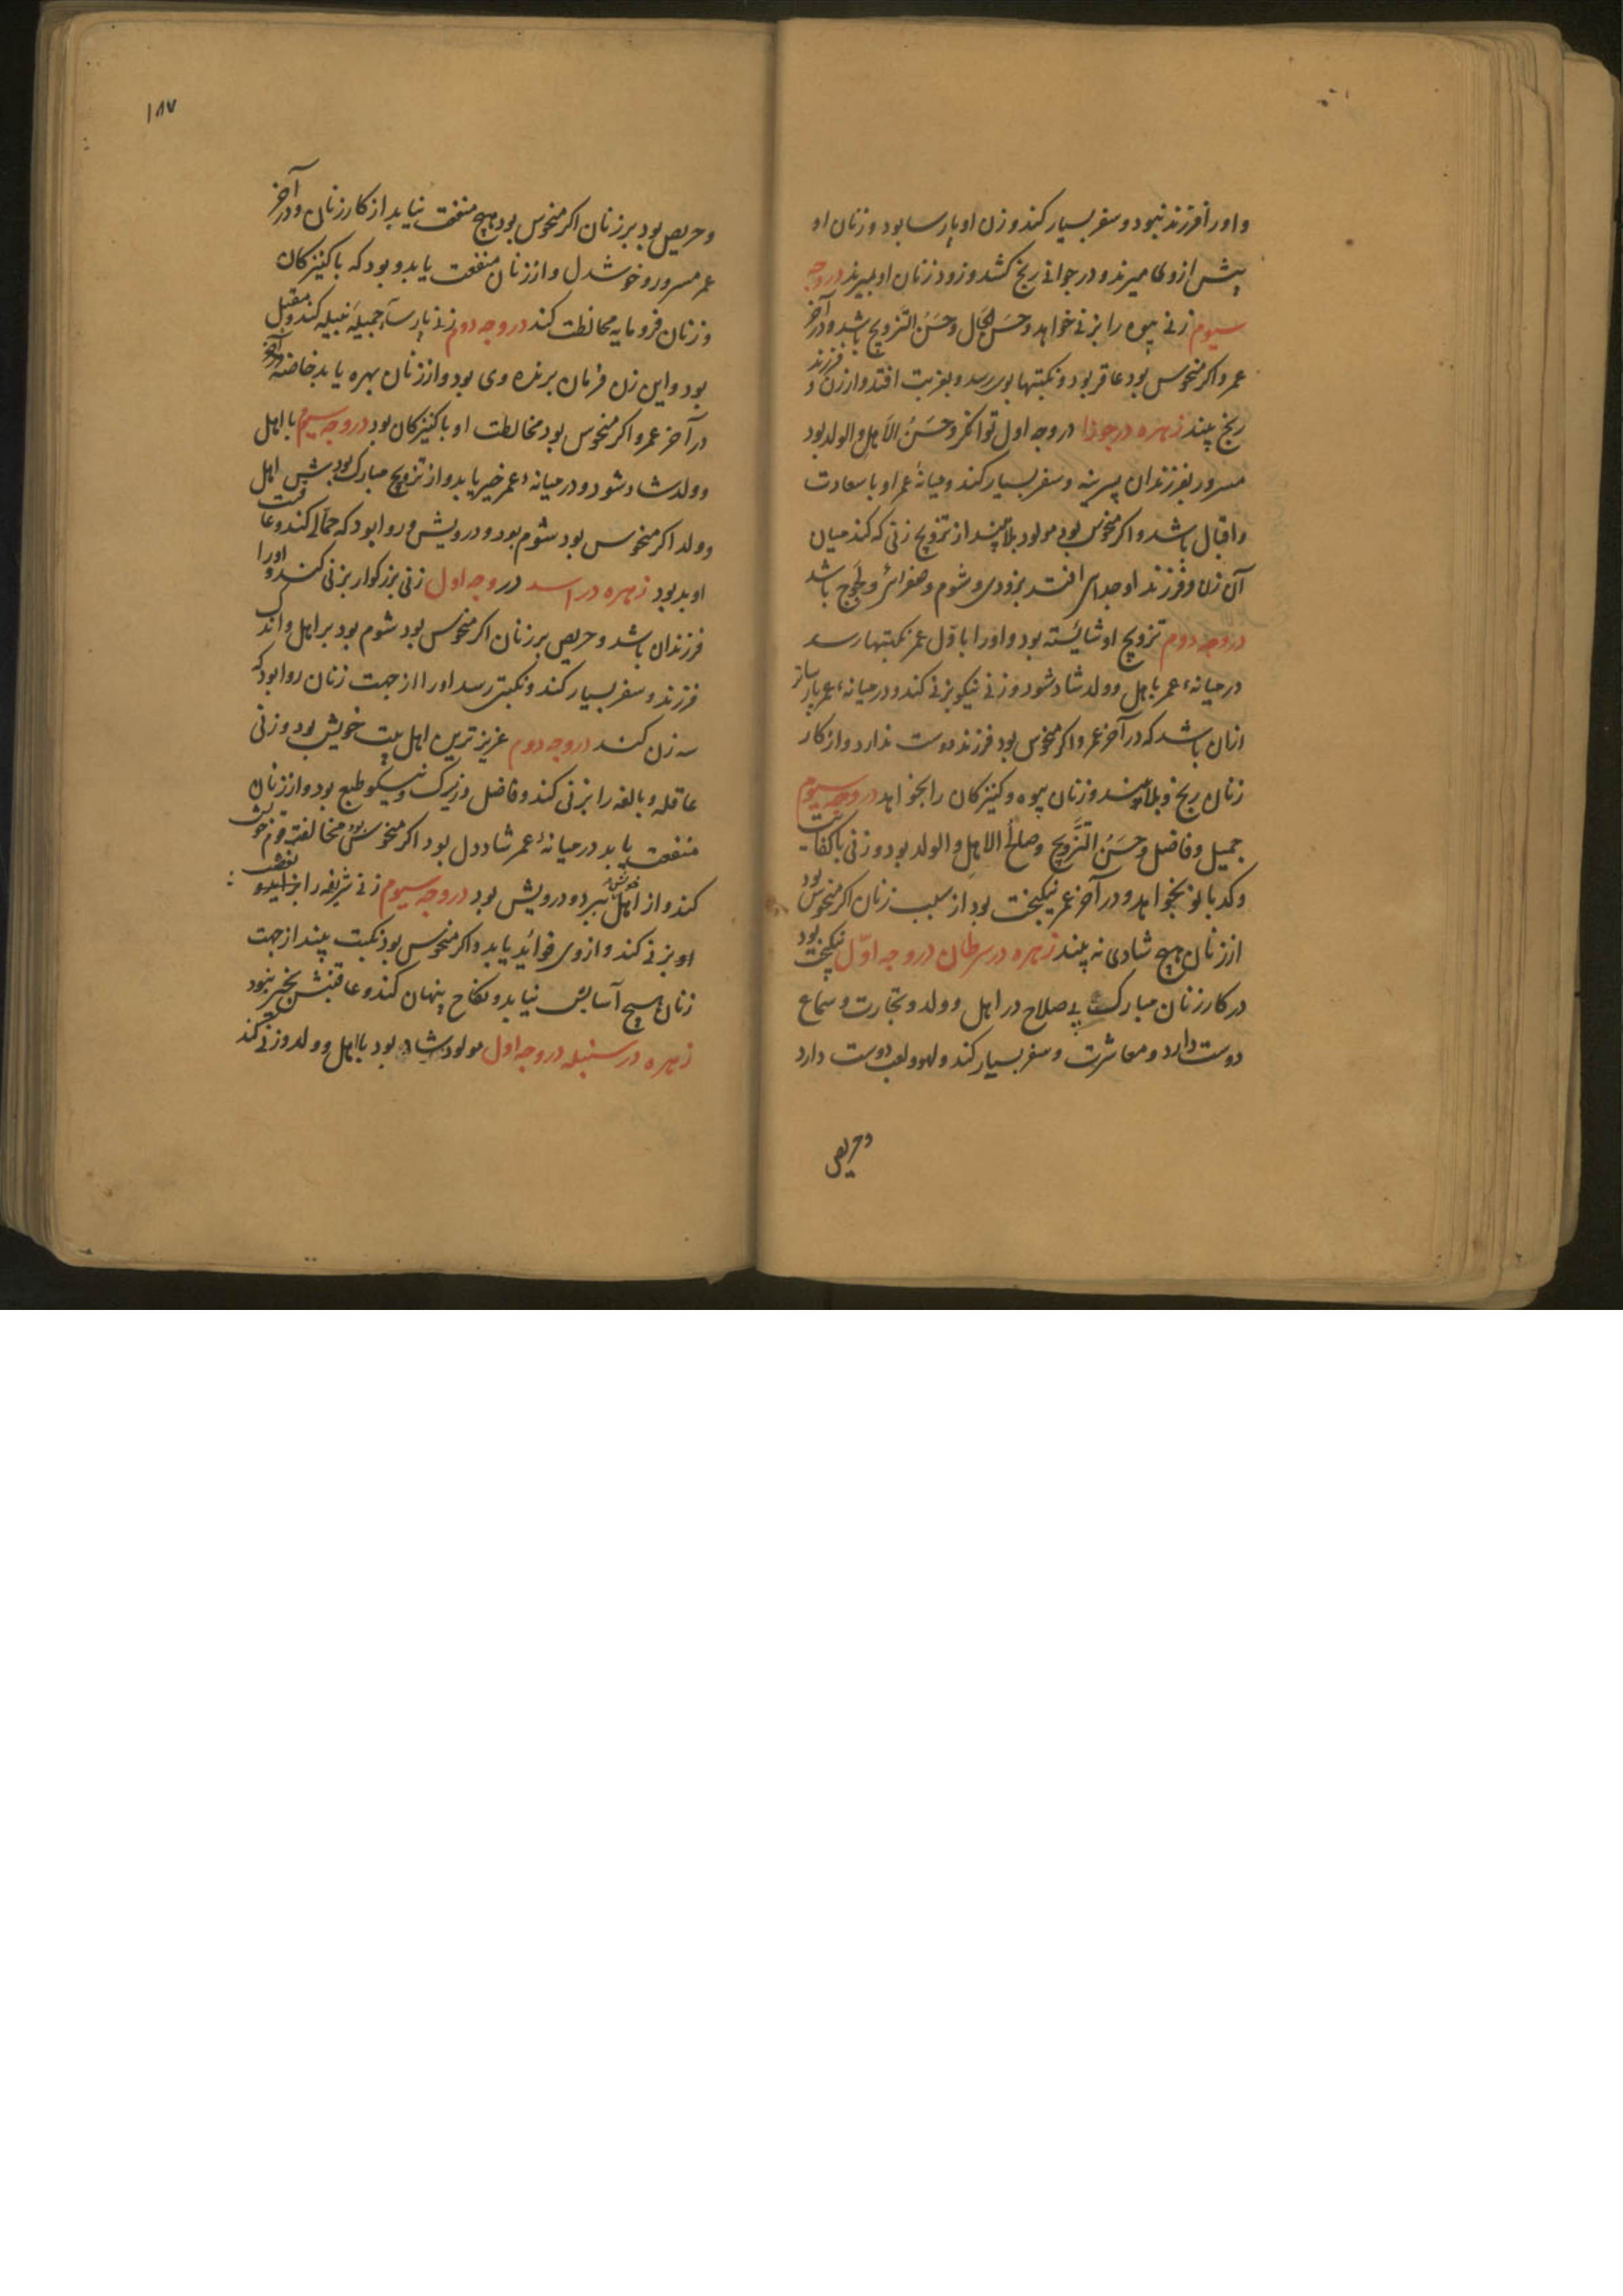 و اورا فرزند نبود و سفر بسیار کند و زن او پارسا بود و زنان او
پیش از وی میرند و در جوانی رنج کشد و زود زنان او بمیرند در وجه
سیوم زنی بیوه را بزنی خواهد و حسن الحال و حَسَنُ التَّزویج باشد و در آخر
عمر و اکر منحوس بود عاقر بود و نکبتها بوی رسد و بغربت افتد و از زن و فرزند
رنج بیند زهره در جوزا در وجه اول توانکر و حَسَنُ الاَهلِ و الولد بود
مسرور بفرزندان پسرینه و سفر بسیار کند و میانهٔ عمر او با سعادت
و اقبال باشد و اکر منحوس بود مولود بلا بیند از تزویج زنی که کند میان
آن زن و فرزند او جدایی افتد بزودی و شوم و صفرائی و لجوج باشد
در وجه دوم تزویج او شائسته بود و اورا باوّل عمر نکبتها رسد
در میانهٔ عمر باهل و ولد شاد شود و زنی نیکو بزنی کند و در میانهٔ عمر پارساتر
ازان باشد که در آخر عمر و اکر منحوس بود فرزند دوست ندارد و از کار
زنان رنج و بلا بیند و زنان بیوه و کنیزکان را بخواهد در وجه سیوم
جمیل و فاضل و حَسَنُ التَّزویج و صلحُ الاهلِ و الولد بود و زنی باکفایت
و کدبانو بخواهد و در آخر عمر نیکبخت بود از سبب زنان اکر منحوس بود
از زنان هیچ شادی نه بیند زهره در سرطان در وجه اوّل نیکبخت بود
در کار زنان مبارک پی صلاح در اهل و ولد و تجارت و سماع
دوست دارد و معاشرت و سفر بسیار کند و لهو و لعب دوست دارد
و حریص
۱۸۷
و حریص بود بر زنان اکر منحوس بود هیچ منفعت نیابد از کار زنان و در آخر
عمر مسرور و خوشدل و از زنان منفعت یابد و بود که با کنیزکان
و زنان فرومایه مخالطت کند در وجه دوم زنی پارسا جمیله نبیله کند و مقبل
بود و این زن فرمان برنده وی بود و از زنان بهره یابد خاصه
در آخر عمر و اکر منحوس بود مخالطت او با کنیزکان بود در وجه سیوم با اهل
و ولد شاد شود و در میانهٔ عمر خیر یابد و از تزویج مبارک بود بیش اهل
و ولد اکر منحوس بود شوم بود و درویش و روا بود که حمالی کند و عاقبت
او بد بود زهره در اسد در وجه اول زنی بزرکوار بزنی کند و اورا
فرزندان باشد و حریص بر زنان اکر منحوس بود شوم بود بر اهل و اندک
فرزند و سفر بسیار کند و نکبتی رسد اورا از جهت زنان روا بود که
سه زن کند در وجه دوم عزیزترین اهل بیت خویش بود و زنی
عاقله و بالغه را بزنی کند و فاضل و زیرک و نیکو طبع بود و از زنان
منفعت یابد در میانهٔ عمر شاد دل بود اکر منحوس بود مخالفت قوم خویش
کند و از اهل خویش ببرد و درویش بود در وجه سیوم زنی شریفه را
او بزنی کند و از وی فوائد یابد و اکر منحوس بود نکبت بیند از جهت
زنان هیچ آسایش نیابد و نکاح پنهان کند و عاقبتش بخیر نبود
زهره در سنبله در وجه اول مولود شاد بود با اهل و ولد و زنی کند